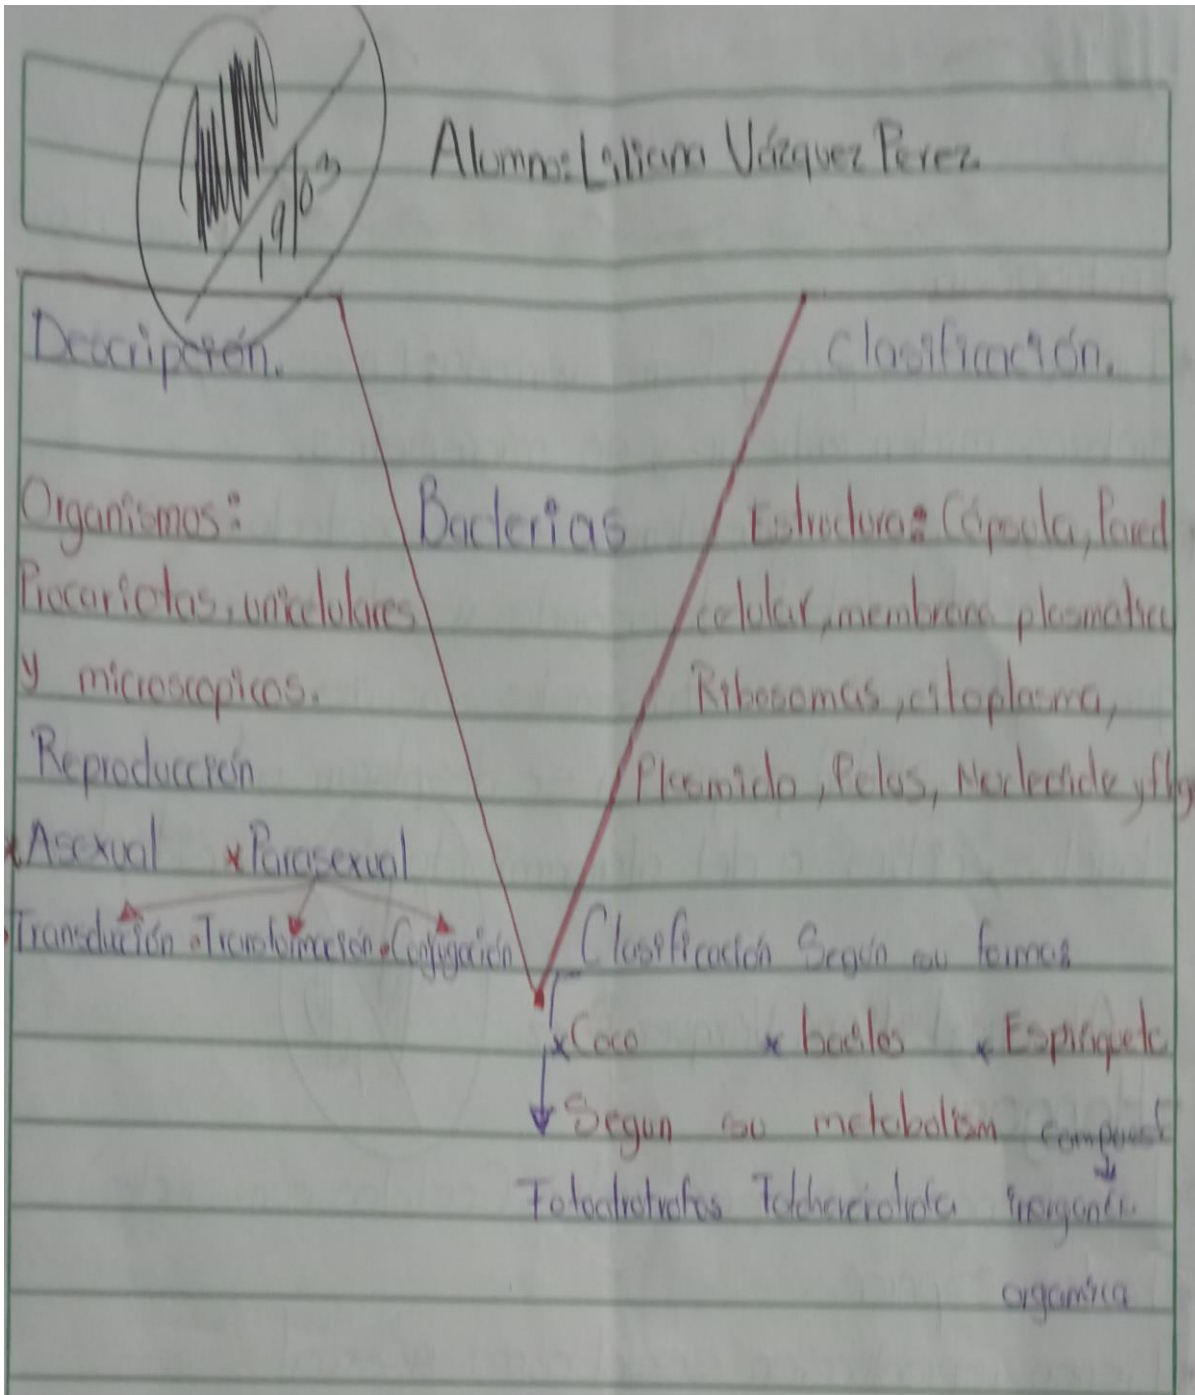 Alumno: Liliana Vázquez Perez.
Descripción.
Clasificación.
Bacterias
Organismos:
Procariotas, unicelulares
y microscopicos.
Reproducción
* Asexual * Parasexual
Transdución . Transformación . Conjugación
Estructura: Cápsula, Pared
celular, membrana plasmatica
Ribosomas, citoplasma,
Plasmido, Pelos, Nucleoide y flag
Clasificación Segun su formas
* Coco * bacilos * Espiroqueta
Segun su metabolism compuest
Fotoautotrofos inorganic
organica